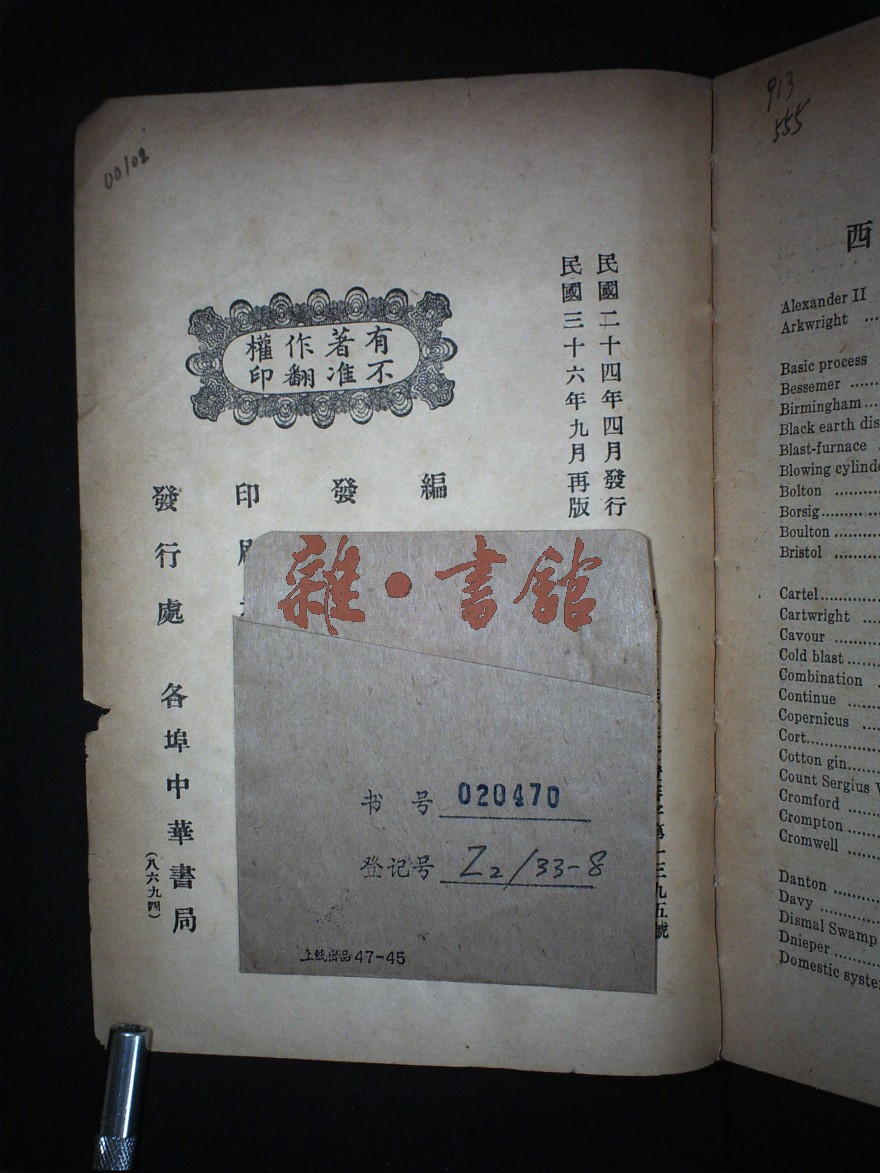 00102
民國二十四年四月發行
民國三十六年九月再版
有著作權
不准翻印
編
發
印刷
發行處 各埠中華書局
(八六九四)
雜·書館
书号 020470
登记号 Z2/33-8
上紙出品47-45
第一三九五號
913
555
西
Alexander II
Arkwright
Basic process
Bessemer
Birmingham
Black earth dis
Blast-furnace
Blowing cylinde
Bolton
Borsig
Boulton
Bristol
Cartel
Cartwright
Cavour
Cold blast
Combination
Continue
Copernicus
Cort
Cotton gin
Count Sergius
Cromford
Crompton
Cromwell
Danton
Davy
Dismal Swamp
Dnieper
Domestic syste